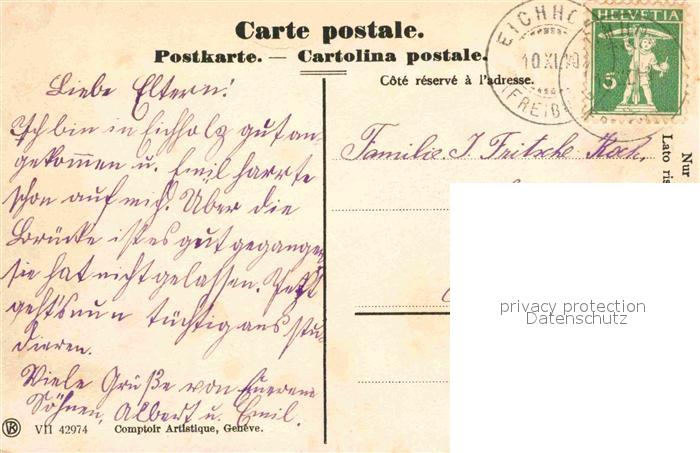 Carte postale.
Postkarte. — Cartolina postale.
Côté réservé à l'adresse.
EICHHOLZ
10.XI.10
(FREIB
HELVETIA
5
Nur
Lato ris
Liebe Eltern!
Ich bin in Eichholz gut an-
gekommen u. Emil harrte
schon auf mich. Über die
Brücke ist es gut gegangen
sie hat nicht gelassen. Jetzt
geht's nun tüchtig ans stu-
dieren.
Viele Grüße von Eueren
Söhnen, Albert u. Emil.
Familie J Fritsche Koch,
privacy protection
Datenschutz
VII 42974 Comptoir Artistique, Genève.